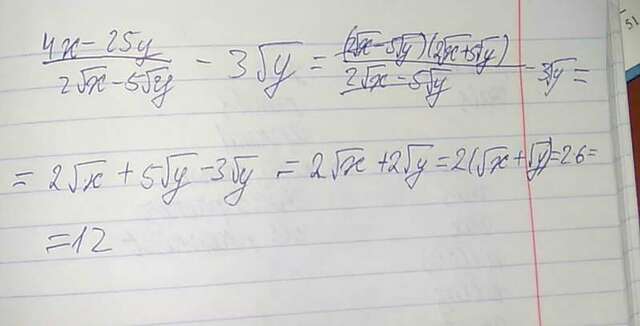 (4x − 25y)/(2√x − 5√y) − 3√y = ((2√x − 5√y)(2√x + 5√y))/(2√x − 5√y) − 3√y =
= 2√x + 5√y − 3√y = 2√x + 2√y = 2(√x + √y) = 2·6 =
= 12